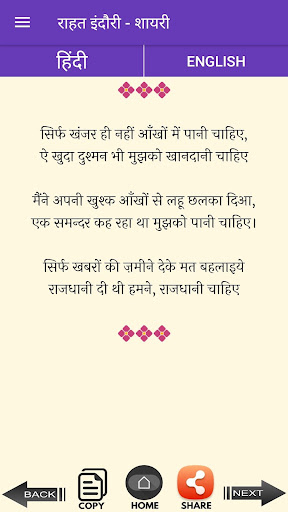 राहत इंदौरी - शायरी
हिंदी
ENGLISH
सिर्फ खंजर ही नहीं आँखों में पानी चाहिए,
ऐ खुदा दुश्मन भी मुझको खानदानी चाहिए
मैंने अपनी खुश्क आँखों से लहू छलका दिआ,
एक समन्दर कह रहा था मुझको पानी चाहिए।
सिर्फ खबरों की ज़मीने देके मत बहलाइये
राजधानी दी थी हमने, राजधानी चाहिए
BACK
COPY
HOME
SHARE
NEXT